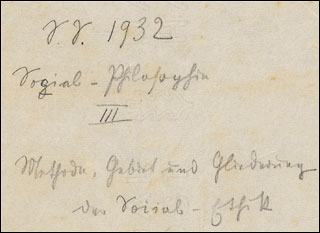 S. S. 1932
Sozial - Philosophie
III
Methode, Gebiet und Gliederung
der Sozial - Ethik